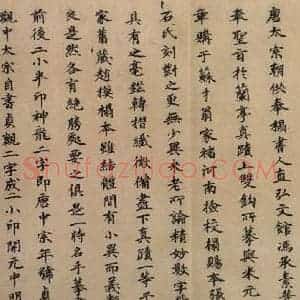 唐太宗朝供奉搨書人直弘文館馮承素等
奉聖旨於蘭亭真蹟雙鉤所摹與米元
章購于蘇才翁家褚河南檢校搨賜本張
石氏刻對之更無少異米老所論精妙數字
具有之毫鋩轉摺纖微備盡下真蹟一等
家舊藏趙模搨本雖結體間有小異而義
良是然各有絕勝處要俱是一時名手摹
前後二小半印神龍二字即唐中宗年號貞
觀中太宗自書貞觀二字成二小印開元中明